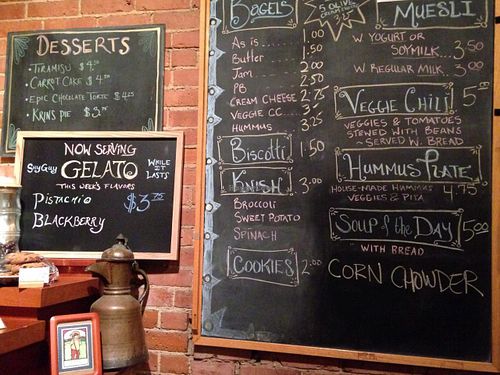 DESSERTS
TIRAMISU $4.50
CARROT CAKE $4.
EPIC CHOCOLATE TORTE $4.25
KRIN'S PIE $3.75
NOW SERVING
SoyGuy GELATO WHILE IT LASTS
THIS WEEK'S FLAVORS
PISTACHIO
BLACKBERRY
$3.75
BAGELS
5 OLIVE
As is 1.00
Butter 1.50
Jam 2.00
PB 2.50
CREAM CHEESE 2.75
VEGGIE CC 3.
HUMMUS 3.25
Biscotti 1.50
KNISH 3.00
BROCCOLI
SWEET POTATO
SPINACH
COOKIES 2.00
MUESLI
W YOGURT OR
SOYMILK 3.50
W REGULAR MILK 3.00
VEGGIE CHILI 5.00
VEGGIES & TOMATOES
STEWED WITH BEANS
~ SERVED W. BREAD
HUMMUS PLATE 4.75
HOUSE-MADE HUMMUS
VEGGIES & PITA
SOUP of the DAY 5.00
WITH BREAD
CORN CHOWDER